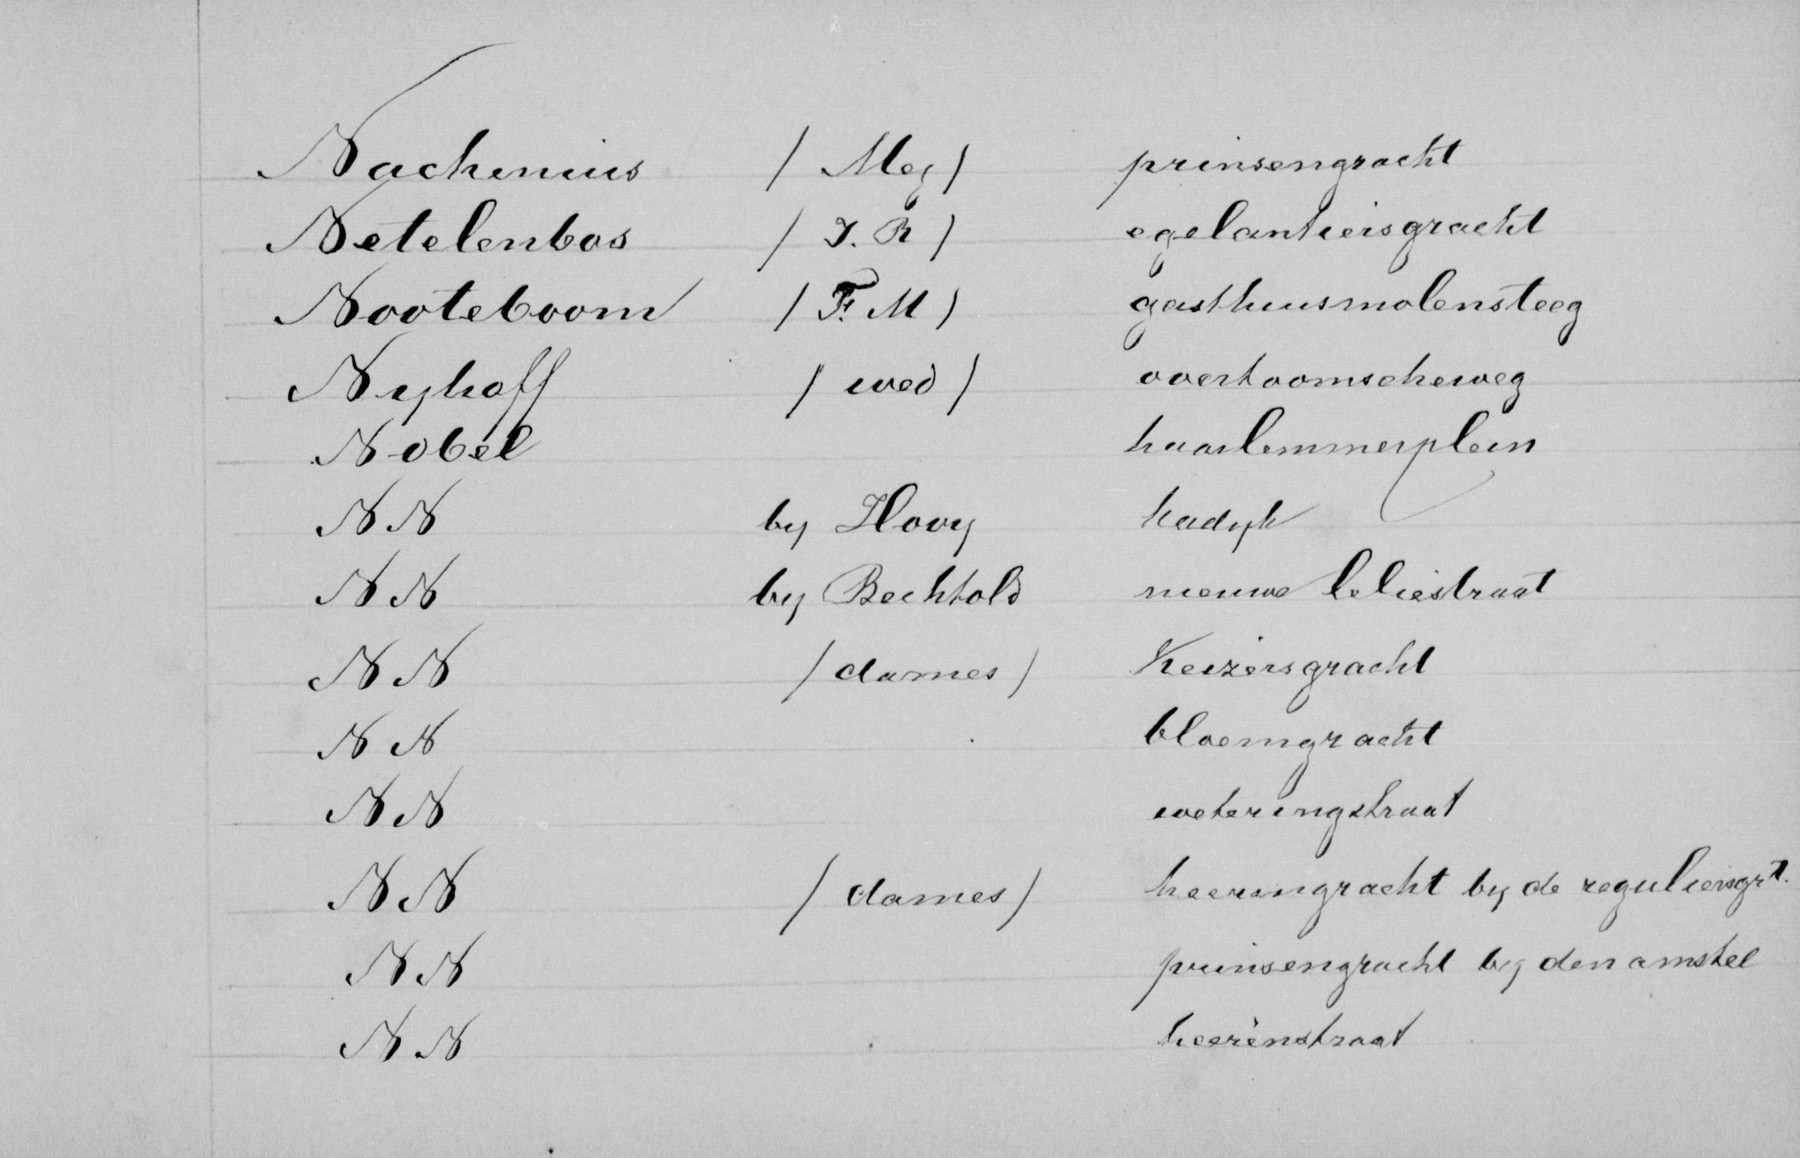 Nachenius / Mej / prinsengracht
Netelenbos / J. R / egelantiersgracht
Nooteboom / F. M / gasthuismolensteeg
Nyhoff / wed / overtoomscheweg
Nobel haarlemmerplein
N N by Hooy kadyk
N N by Bechtold nieuwe leliestraat
N N / dames / Keizersgracht
N N bloemgracht
N N weteringstraat
N N / dames / heerengracht by de reguliersgrt.
N N prinsengracht by den amstel
N N heerenstraat